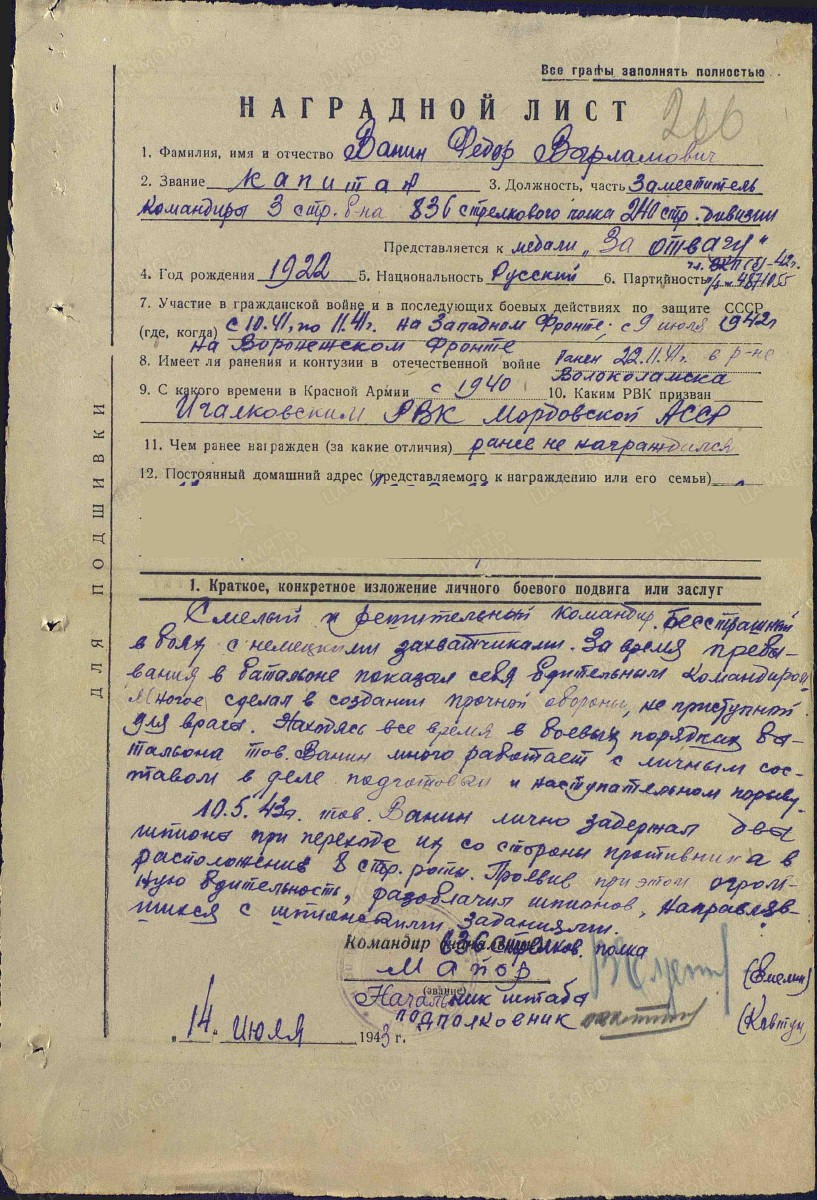 Все графы заполнять полностью
НАГРАДНОЙ ЛИСТ
266
1. Фамилия, имя и отчество Ванин Федор Варламович
2. Звание капитан 3. Должность, часть Заместитель
командира 3 стр. б-на 836 стрелкового полка 240 стр. дивизии
Представляется к медали „За отвагу“
4. Год рождения 1922 5. Национальность Русский 6. Партийность чл. ВКП(б)-42г.
7. Участие в гражданской войне и в последующих боевых действиях по защите СССР
(где, когда) с 10.41, по 11.41г. на Западном Фронте; с 9 июля 1942г
на Воронежском Фронте
8. Имеет ли ранения и контузии в отечественной войне Ранен 22.11.41г. в р-не
Волоколамска
9. С какого времени в Красной Армии с 1940 10. Каким РВК призван
Ичалковским РВК Мордовской АССР
11. Чем ранее награжден (за какие отличия) ранее не награждался
12. Постоянный домашний адрес (представляемого к награждению или его семьи)
1. Краткое, конкретное изложение личного боевого подвига или заслуг
Смелый и решительный командир, бесстрашный
в бою с немецкими захватчиками. За время пребы-
вания в батальоне показал себя бдительным командиром
Многое сделал в создании прочной обороны, не приступной
для врага. Находясь все время в боевых порядках ба-
тальона тов. Ванин много работает с личным сос-
тавом в деле подготовки и наступательном порыву.
10.5.43г. тов. Ванин лично задержал два
шпиона при переходе их со стороны противника в
расположение 8 стр. роты. Проявив при этом огром-
ную бдительность, разоблачил шпионов, направляв-
шихся с шпионскими заданиями.
Командир 836 стрелков. полка
Майор
(звание)
Начальник штаба
подполковник (Ковтун)
14 июля 1943 г.
ДЛЯ ПОДШИВКИ